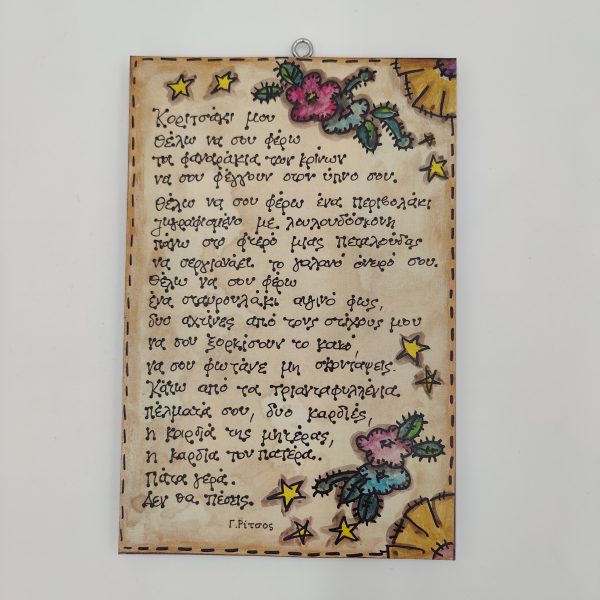 Κοριτσάκι μου
θέλω να σου φέρω
τα φαναράκια των κρίνων
να σου φέγγουν στον ύπνο σου.
Θέλω να σου φέρω ένα περιβολάκι
ζωγραφισμένο με λουλουδόσκονη
πάνω στο φτερό μιας πεταλούδας
να σεργιανάει το γαλανό όνειρό σου.
Θέλω να σου φέρω
ένα σταυρουλάκι αυγινό φως,
δυο αχτίνες από τους στίχους μου
να σου ξορκίσουν το κακό,
να σου φωτάνε μη σκοντάψεις.
Κάτω από τα τριανταφυλλένια
πέλματά σου, δυο καρδιές,
η καρδιά της μητέρας,
η καρδιά του πατέρα..
Πάτα γερά.
Δεν θα πέσεις.
Γ.Ρίτσος